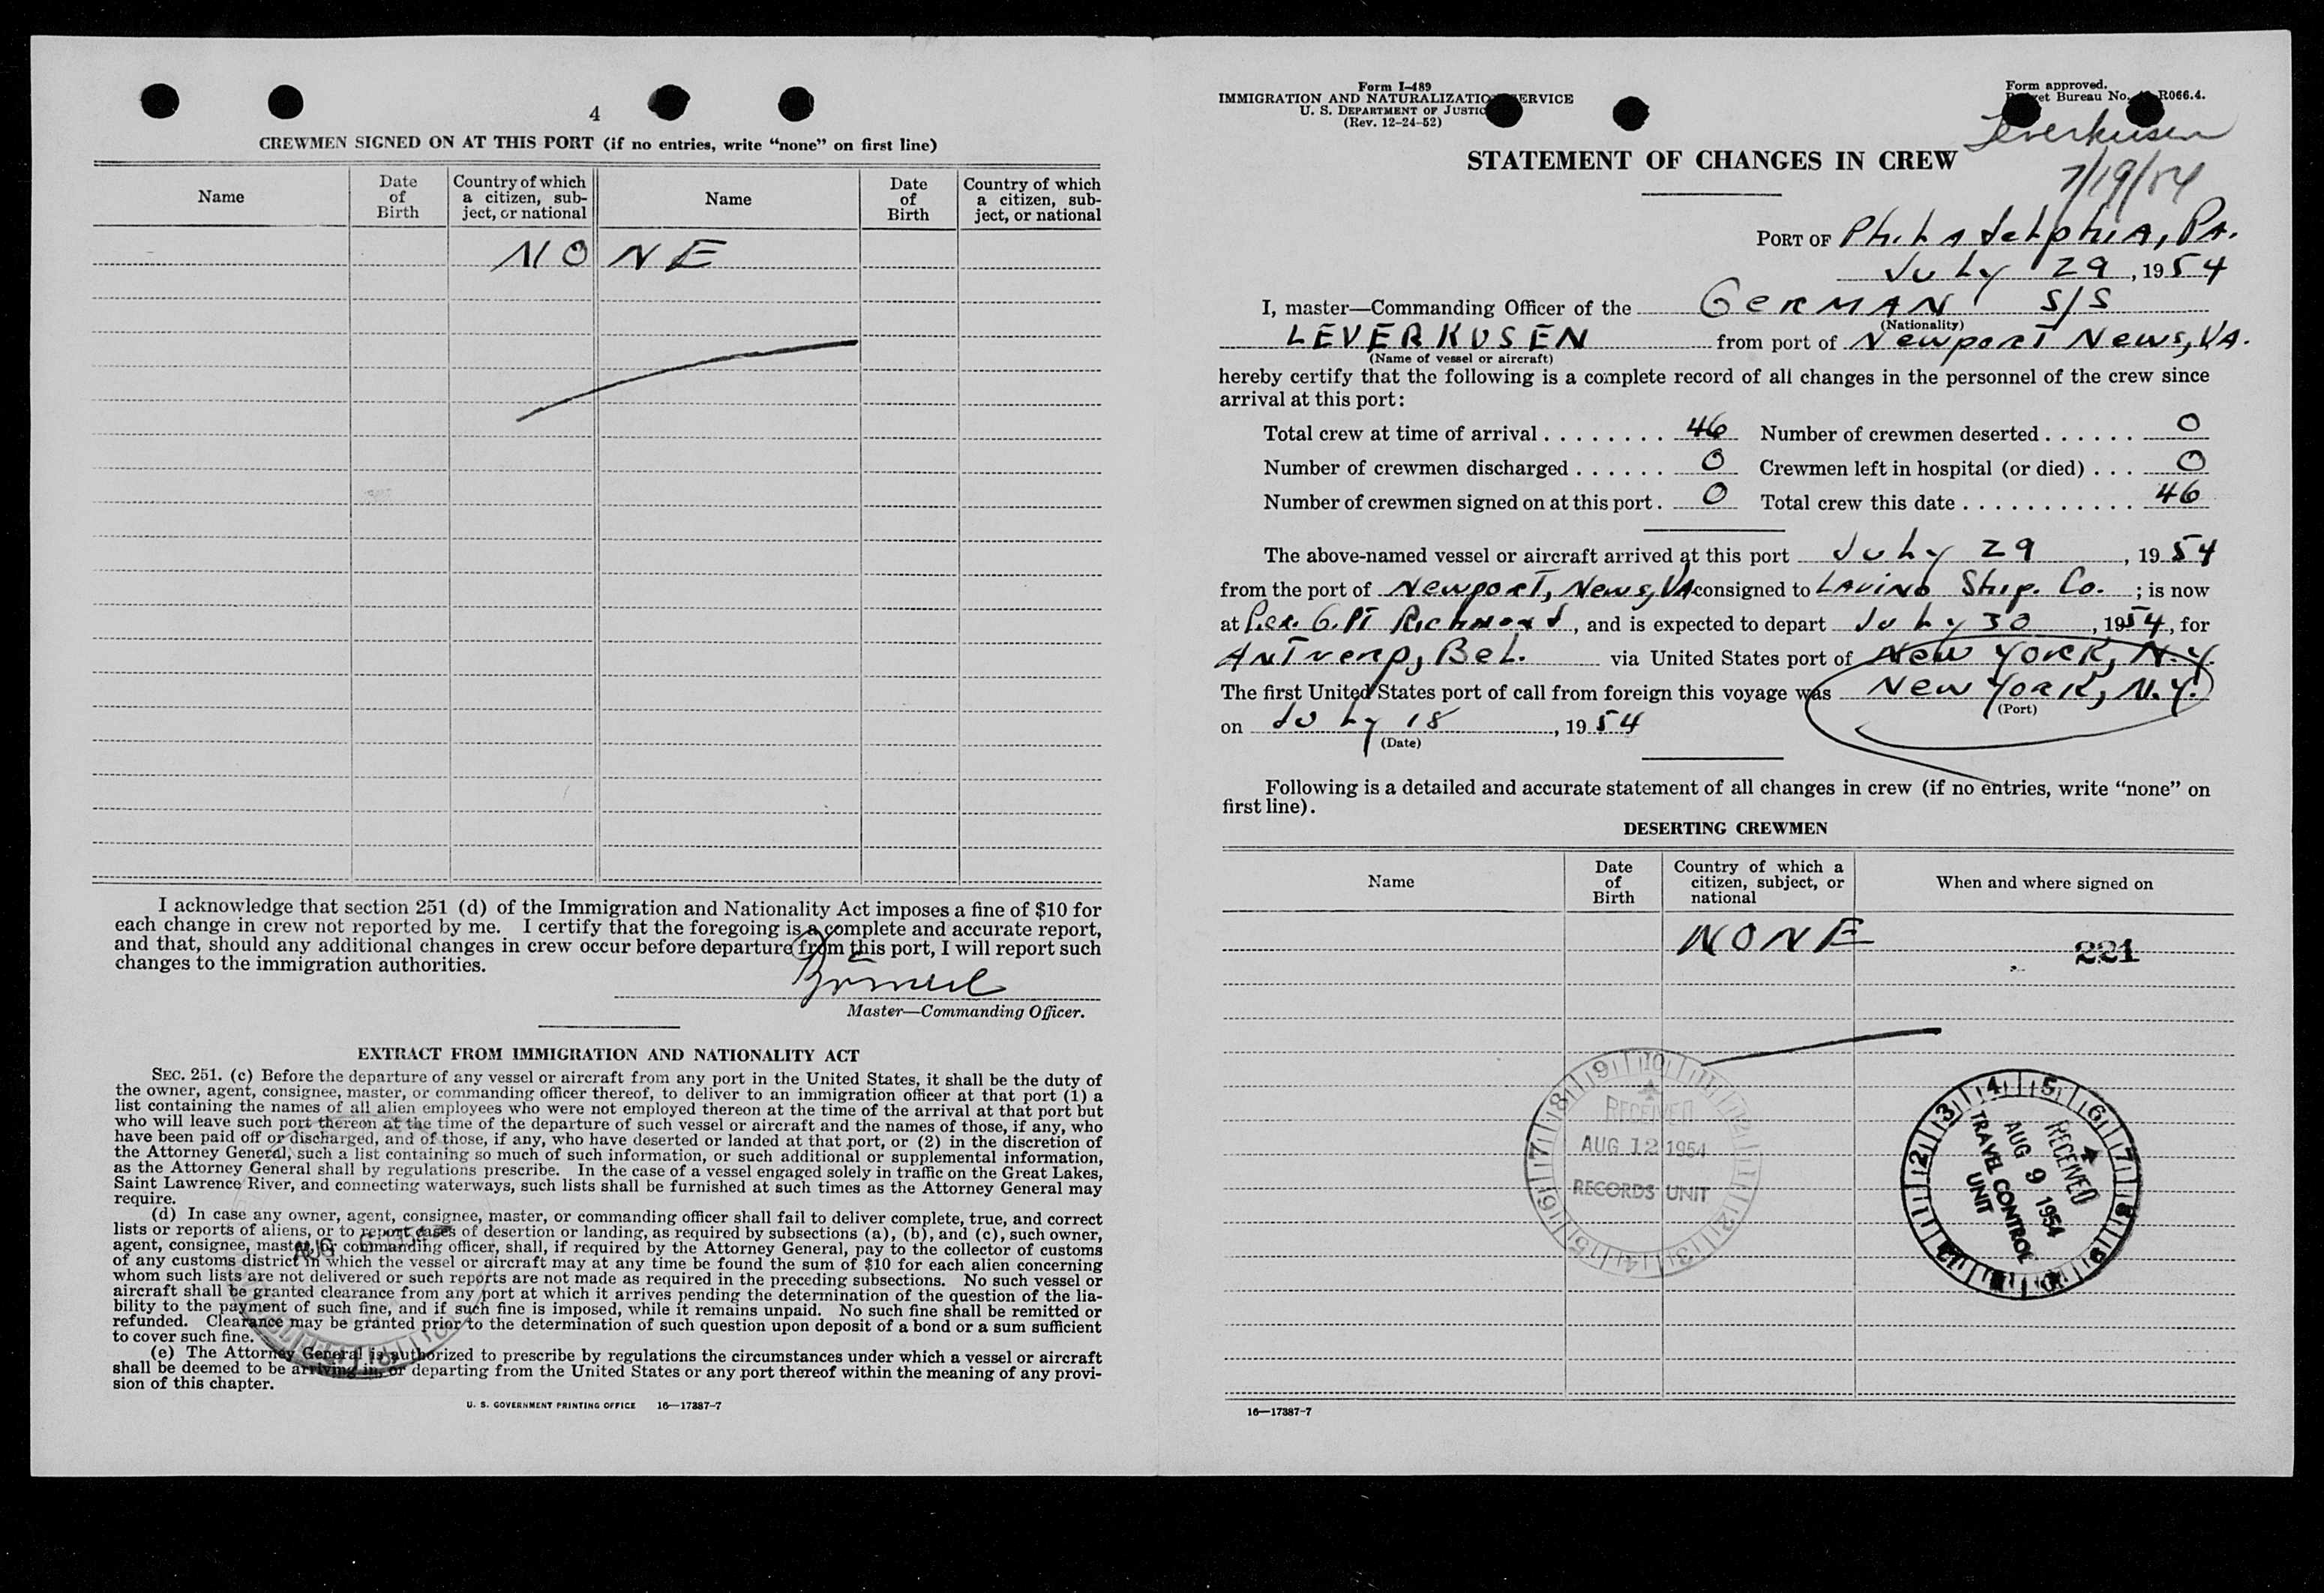 4
CREWMEN SIGNED ON AT THIS PORT (if no entries, write “none” on first line)
Name
Date of Birth
Country of which a citizen, sub-ject, or national
Name
Date of Birth
Country of which a citizen, sub-ject, or national
NONE
I acknowledge that section 251 (d) of the Immigration and Nationality Act imposes a fine of $10 for
each change in crew not reported by me. I certify that the foregoing is a complete and accurate report,
and that, should any additional changes in crew occur before departure from this port, I will report such
changes to the immigration authorities.
Master—Commanding Officer.
EXTRACT FROM IMMIGRATION AND NATIONALITY ACT
SEC. 251. (c) Before the departure of any vessel or aircraft from any port in the United States, it shall be the duty of
the owner, agent, consignee, master, or commanding officer thereof, to deliver to an immigration officer at that port (1) a
list containing the names of all alien employees who were not employed thereon at the time of the arrival at that port but
who will leave such port thereon at the time of the departure of such vessel or aircraft and the names of those, if any, who
have been paid off or discharged, and of those, if any, who have deserted or landed at that port, or (2) in the discretion of
the Attorney General, such a list containing so much of such information, or such additional or supplemental information,
as the Attorney General shall by regulations prescribe. In the case of a vessel engaged solely in traffic on the Great Lakes,
Saint Lawrence River, and connecting waterways, such lists shall be furnished at such times as the Attorney General may
require.
(d) In case any owner, agent, consignee, master, or commanding officer shall fail to deliver complete, true, and correct
lists or reports of aliens, or to report cases of desertion or landing, as required by subsections (a), (b), and (c), such owner,
agent, consignee, master, or commanding officer, shall, if required by the Attorney General, pay to the collector of customs
of any customs district in which the vessel or aircraft may at any time be found the sum of $10 for each alien concerning
whom such lists are not delivered or such reports are not made as required in the preceding subsections. No such vessel or
aircraft shall be granted clearance from any port at which it arrives pending the determination of the question of the lia-
bility to the payment of such fine, and if such fine is imposed, while it remains unpaid. No such fine shall be remitted or
refunded. Clearance may be granted prior to the determination of such question upon deposit of a bond or a sum sufficient
to cover such fine.
(e) The Attorney General is authorized to prescribe by regulations the circumstances under which a vessel or aircraft
shall be deemed to be arriving in, or departing from the United States or any port thereof within the meaning of any provi-
sion of this chapter.
AUG
U. S. GOVERNMENT PRINTING OFFICE 16—17387-7
Form I-489
IMMIGRATION AND NATURALIZATION SERVICE
U. S. DEPARTMENT OF JUSTICE
(Rev. 12-24-52)
Form approved.
Budget Bureau No. R066.4.
Leverkusen
7/19/54
STATEMENT OF CHANGES IN CREW
PORT OF Philadelphia, Pa.
July 29, 1954
I, master—Commanding Officer of the GERMAN S/S
(Nationality)
LEVERKUSEN from port of Newport News, VA.
(Name of vessel or aircraft)
hereby certify that the following is a complete record of all changes in the personnel of the crew since
arrival at this port:
Total crew at time of arrival . . . . . . . . 46 Number of crewmen deserted . . . . . . 0
Number of crewmen discharged . . . . . . 0 Crewmen left in hospital (or died) . . . 0
Number of crewmen signed on at this port . 0 Total crew this date . . . . . . . . . . . 46
The above-named vessel or aircraft arrived at this port July 29, 1954
from the port of Newport, News, VA consigned to LAVINO Ship. Co. ; is now
at Pier 6. Pt Richmond, and is expected to depart July 30, 1954, for
Antwerp, Bel. via United States port of New York, N.Y.
The first United States port of call from foreign this voyage was New York, N.Y.
(Port)
on July 18, 1954
(Date)
Following is a detailed and accurate statement of all changes in crew (if no entries, write “none” on
first line).
DESERTING CREWMEN
Name
Date of Birth
Country of which a citizen, subject, or national
When and where signed on
NONE
221
RECEIVED
AUG 12 1954
RECORDS UNIT
RECEIVED
AUG 9 1954
TRAVEL CONTROL
UNIT
16—17387-7